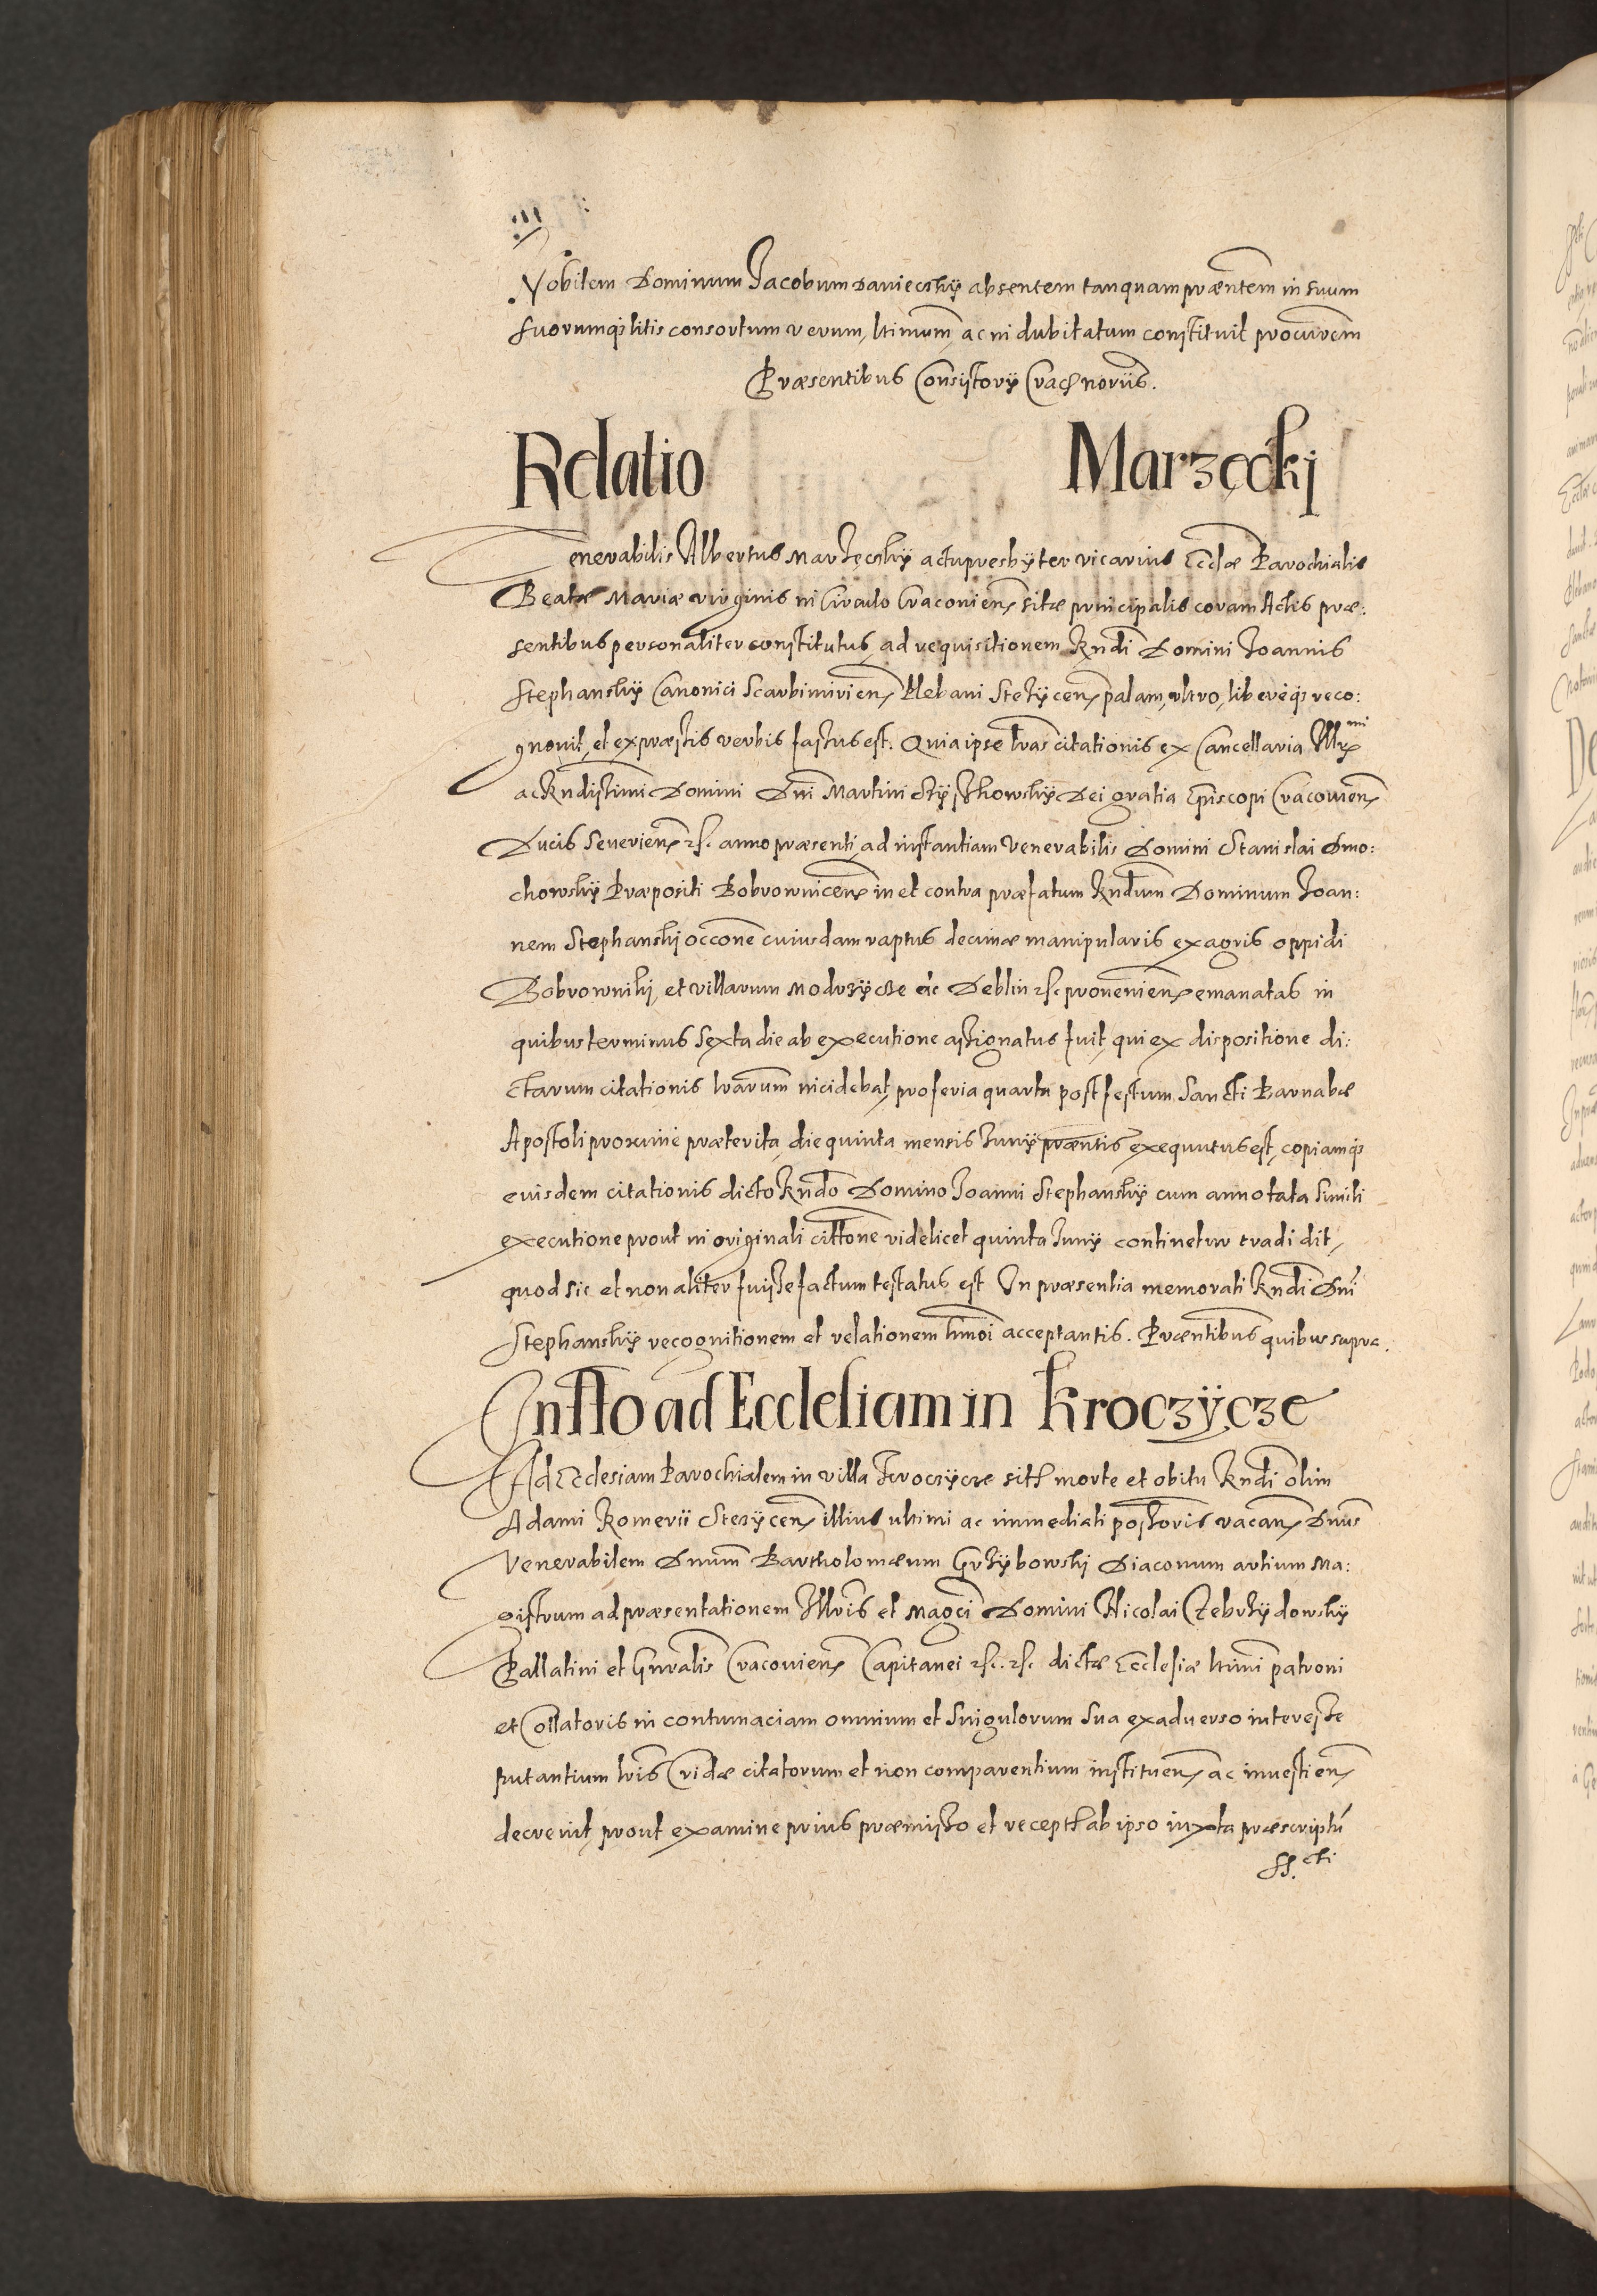 Nobilem Dominum Jacobum Daniecskÿ absentem tanquam præntem in suum
suorumq́ꝫ litis consortum verum, ltimum, ac indubitatum constituit procuirem
Præsentibus Consistorÿ Crac notriis.
Relatio Marzęckj
Venerabilis Albertus Marzęcskÿ actu presbÿter vicarius Ecclæ Parochialis
Beatæ Mariæ virginis in Circulo Cracovien sitæ principalis coram Actis præ:
sentibus personaliter constitutus, ad requisitionem Rndi Domini Joannis
Stephanskÿ Canonici Scarbimirien Plebani Stezÿcen palam, ultro, libereq́ꝫ reco:
gnovit, et expræssis verbis fassus est. Quia ipse lras citationis ex Cancellaria Illr mi
ac Rndissimi Domini Dni Martini Szÿszkowskÿ Dei gratia Episcopi Cracovien
Ducis Severien etc. anno præsenti, ad instantiam Venerabilis Domini Stanislai Dmo:
chowskÿ Præpositi Bobrownicen in et contra præfatum Rndum Dominum Joan:
nem Stephanskj occone cuiusdam raptus decimæ manipularis ex agris oppidi
Bobrownikj, et villarum Modrzÿcze ac Deblin etc. provenien emanatas in
quibus terminus sexta die ab executione assignatus fuit, qui ex dispositione di:
ctarum citationis lrarum incidebat, pro feria quarta post festum Sancti Barnabæ
Apostoli proxime præterita, die quinta mensis Junÿ præntis exequutus est, copiamq́ꝫ
eiusdem citationis dicto Rndo Domino Joanni Stephanskÿ cum annotata simili
executione prout in originali cittone videlicet quinta Junÿ continetur tradidit,
quod sic et non aliter fuisse factum testatus est In præsentia memorati Rndi Dni
Stephanskÿ recognitionem et relationem hmoi acceptantis. Præntibus quibus supra.
Instto ad Ecclesiam in Kroczÿcze
Ad Ecclesiam Parochialem in villa Kroczÿcze sit morte et obitu Rndi olim
Adami Romerii Stezÿcen illius ultimi ac immediati possoris vacan Dnus
Venerabilem Dnum Bartholomæum Grzÿbowskj Diaconum artium Ma:
gistrum ad præsentationem Illris et Magci Domini Nicolai Zebrzÿdowskÿ
Pallatini et Gnralis Cracovien Capitanei etc. etc. dictæ Ecclesiæ ltimi patroni
et Collatoris in contumaciam omnium et singulorum sua exadverso interesse
putantium lris Cridæ citatorum et non comparentium instituen ac investien
decrevit, prout examine prius præmisso et recept ab ipso iuxta præscriptũ
SS. cti